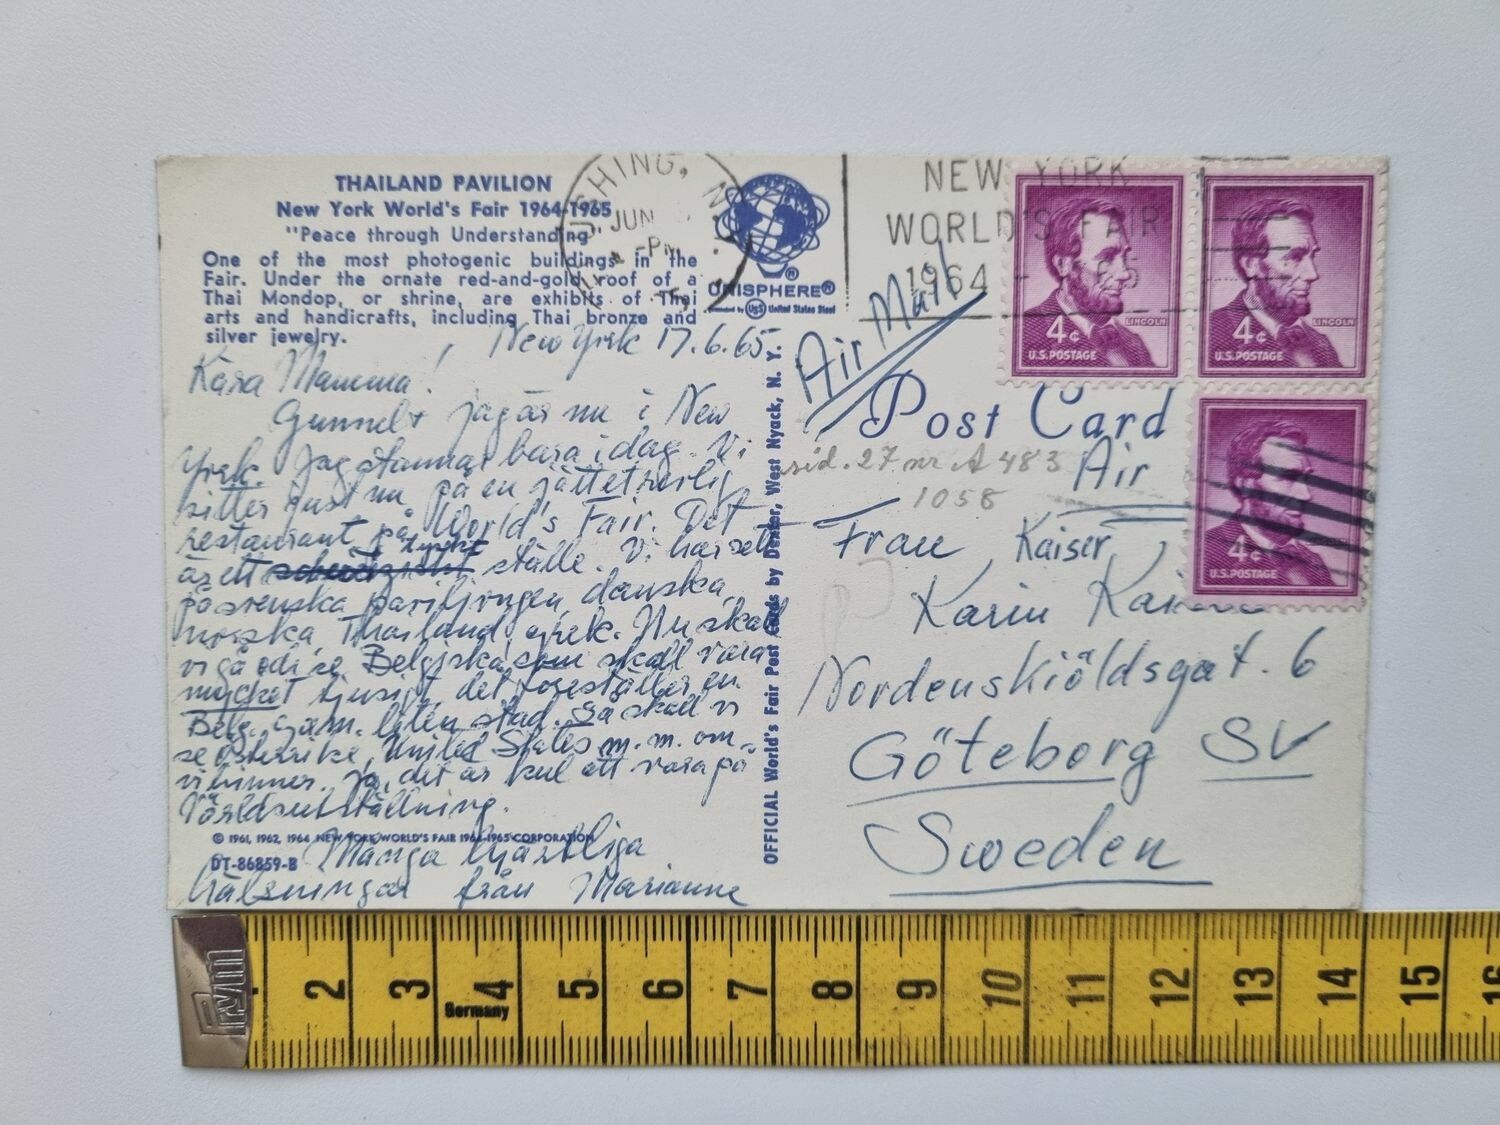 THAILAND PAVILION
New York World's Fair 1964-1965
"Peace through Understanding"
One of the most photogenic buildings in the
Fair. Under the ornate red-and-gold roof of a
Thai Mondop, or shrine, are exhibits of Thai
arts and handicrafts, including Thai bronze and
silver jewelry.
New York 17.6.65
Kära Mamma!
Gunnel + jag är nu i New
York. Jag stannar bara i dag. Vi
sitter just nu på en jättetrevlig
restaurant på World's Fair. Det
är ett ställe. Vi har sett
på svenska paviljongen, danska,
norska, Thailand, grek. Nu skall
vi gå och se Belgiska, som skall vara
mycket tjusigt, det föreställer en
Belg. gam. liten stad. Så skall vi
se Österrike, United States m.m. om
vi hinner. Ja, det är kul att vara på
Världsutställning.
© 1961, 1962, 1964 NEW YORK WORLD'S FAIR 1964-1965 CORPORATION
DT-86859-B
Många hjärtliga
hälsningar från Marianne
FLUSHING, N.Y.
JUN
PM
UNISPHERE®
Presented by USS United States Steel
OFFICIAL World's Fair Post Cards by Dexter, West Nyack, N. Y.
NEW YORK
WORLD'S FAIR
1964 - 65
4¢ LINCOLN
U.S. POSTAGE
4¢ LINCOLN
U.S. POSTAGE
4¢
U.S. POSTAGE
Air Mail
Post Card
sid. 27 nr A 483
1058
Air
Frau Kaiser,
Karin
Nordenskiöldsgat. 6
Göteborg SV
Sweden
Prym
Germany
2 3 4 5 6 7 8 9 10 11 12 13 14 15 16